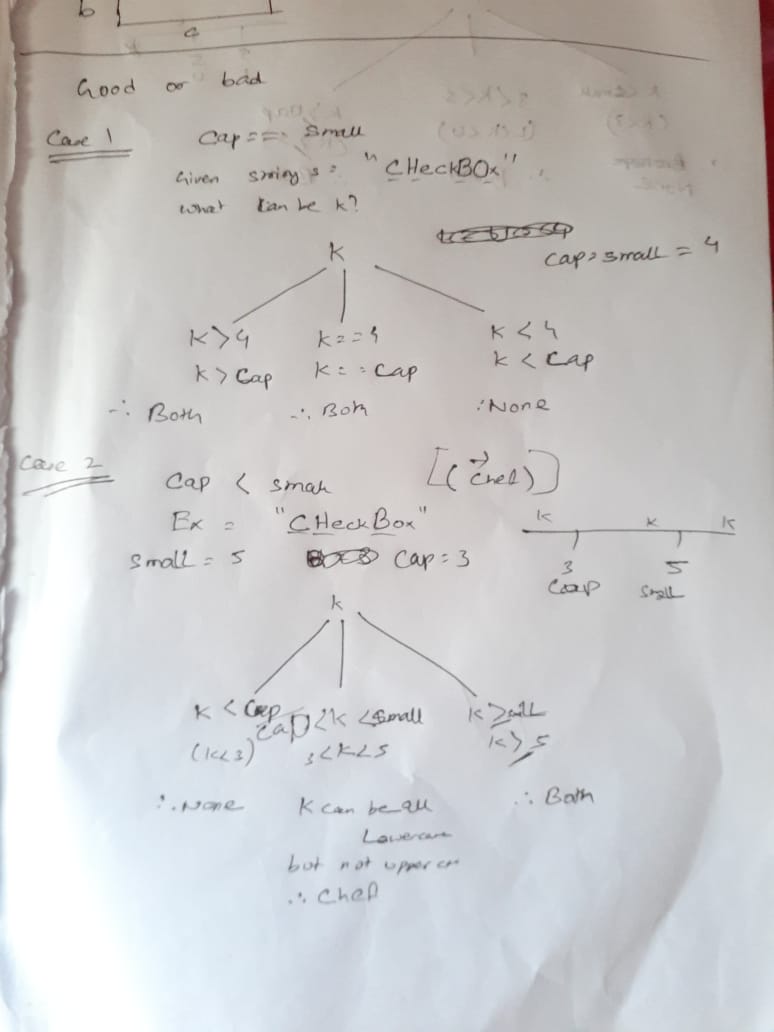 b
a
Good or bad
Case 1
Cap == small
Given string s = "CHeckBOx"
what can be k?
k
Cap = small = 4
k > 4
k > Cap
∴ Both
k == 4
k == Cap
∴ Both
k < 4
k < Cap
∴ None
Case 2
Cap < small
Ex = "CHeckBox"
small = 5
Cap = 3
k k k
3 5
Cap small
k
k < Cap
(k<3)
∴ None
Cap < k < small
3<k<5
k can be all
Lowercase
but not upper
∴ Chef
k ≥
k ≥ 5
∴ Both